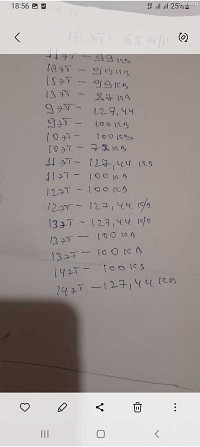 18:56
25%
11 эт - 99 кв
12 эт - 99 кв
13 эт - 99 кв
13 эт - 87 кв
9 эт - 127,44
9 эт - 100 кв
10 эт - 100 кв
10 эт - 78 кв
11 эт - 127,44 кв
11 эт - 100 кв
12 эт - 100 кв
12 эт - 127,44 к/в
13 эт - 127,44 к/в
13 эт - 100 кв
13 эт - 100 кв
14 эт - 100 кв
14 эт - 127,44 кв